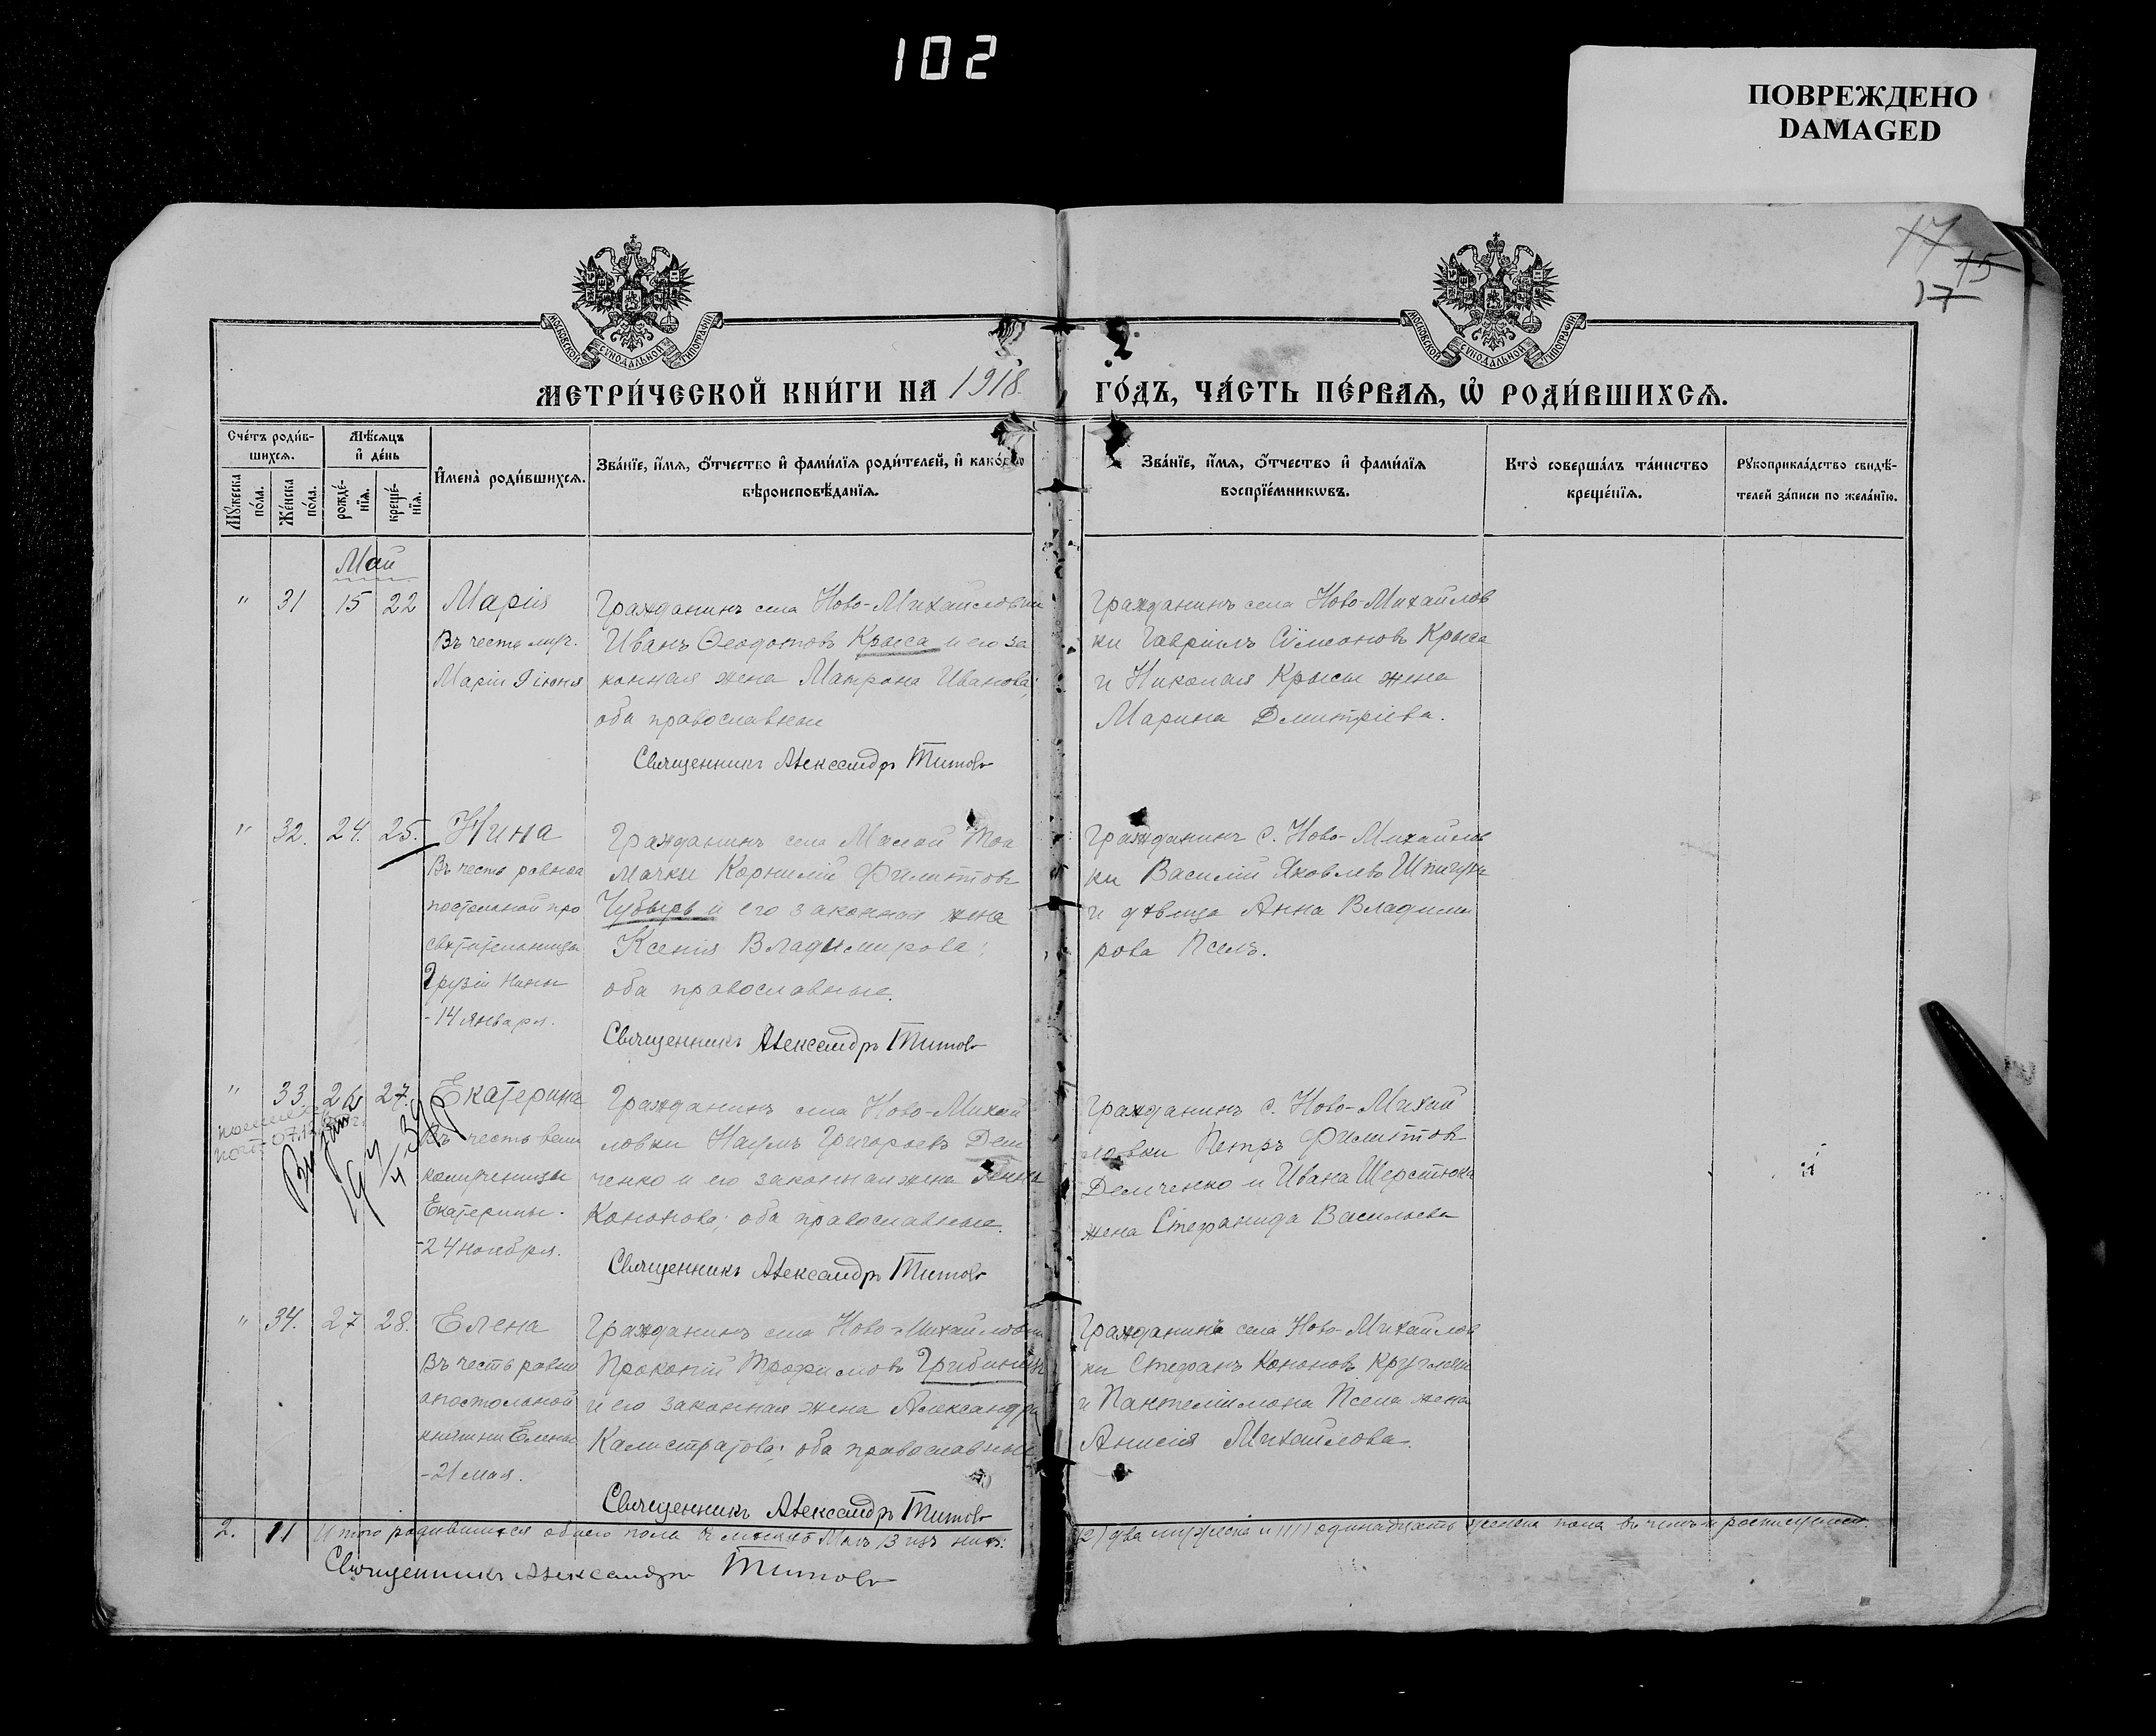 102
ПОВРЕЖДЕНО
DAMAGED
17
15
17
МОСКОВСКОЙ СѴНОДАЛЬНОЙ ТИПОГРАФІИ
МОСКОВСКОЙ СѴНОДАЛЬНОЙ ТИПОГРАФІИ
МЕТРИ́ЧЕСКОЙ КНИ́ГИ НА 1918 ГО́ДЪ, ЧА́СТЬ ПЕ́РВАѦ, Ѡ РОДИ́ВШИХСѦ.
Сче́тъ роди́в-
шихсѧ.
Мꙋ́жеска по́ла.
Же́нска по́ла.
Мѣ́сѧцъ
и де́нь
рожде́-
нїѧ.
креще́-
нїѧ.
И҆мена̀ роди́вшихсѧ.
Зва́нїе, и҆́мѧ, ѻ҆́тчество и҆ фами́лїѧ роди́телей, и҆ како́гѡ
вѣроисповѣ́данїѧ.
Зва́нїе, и҆́мѧ, ѻ҆́тчество и҆ фами́лїѧ
воспрїе́мникѡвъ.
Кто̀ соверша́лъ та́инство
креще́нїѧ.
Рꙋкоприкла́дство свидѣ́-
телей за́писи по жела́нїю.
Май
" 31 15 22 Марія
Въ честь муч.
Маріи 9 іюня
Гражданинъ села Ново-Михайловки
Иванъ Ѳеодотовъ Крыса и его за
конная жена Матрона Иванова:
оба православные
Священникъ Александръ Титовъ
Гражданинъ села Ново-Михайлов
ки Гавріилъ Сѵмеоновъ Крыса
и Николая Крысы жена
Марина Дмитріева.
" 32. 24. 25. Нина
Въ честь равноа
постольной про
свѣтительницы
Грузіи Нины
-14 января.
Гражданинъ села Малой Ток
мачки Корнилій Филиппов
Чубырь и его законная жена
Ксенія Владимирова;
оба православные.
Священникъ Александръ Титовъ
Гражданинъ с. Ново-Михайлов
ки Василій Яковлевъ
и дѣвица Анна Владими
рова Пселъ.
" 33. 26 27. Екатерина
Въ честь вели
комученицы
Екатерины.
-24 ноября.
Гражданинъ села Ново-Михай
ловки Наумъ Григорьевъ Дем
ченко и его законная жена Анна
Кононова: оба православные.
Священникъ Александръ Титовъ
Гражданинъ с. Ново-Михай
ловки Петръ Филиппов
Демченко и Ивана Шерстюка
жена Стефанида Васильева
" 34. 27 28. Елена
Въ честь равно
апостольной
княгини Елены
-21 мая.
Гражданинъ села Ново-Михайловки
Прокопій Трофимовъ
и его законная жена Александра
Калистратова; оба православные
Священникъ Александръ Титовъ
Гражданинъ села Ново-Михайлов
ки Стефанъ Кононовъ
и Пантелимона Псела жена
Анисія Михайлова.
2. 11 Итого родившихся обоего пола въ месяцѣ Маѣ 13 изъ нихъ: (2) два мужеска и (11) одинадцать женска пола въ чемъ и росписуемся.
Священникъ Александръ Титовъ